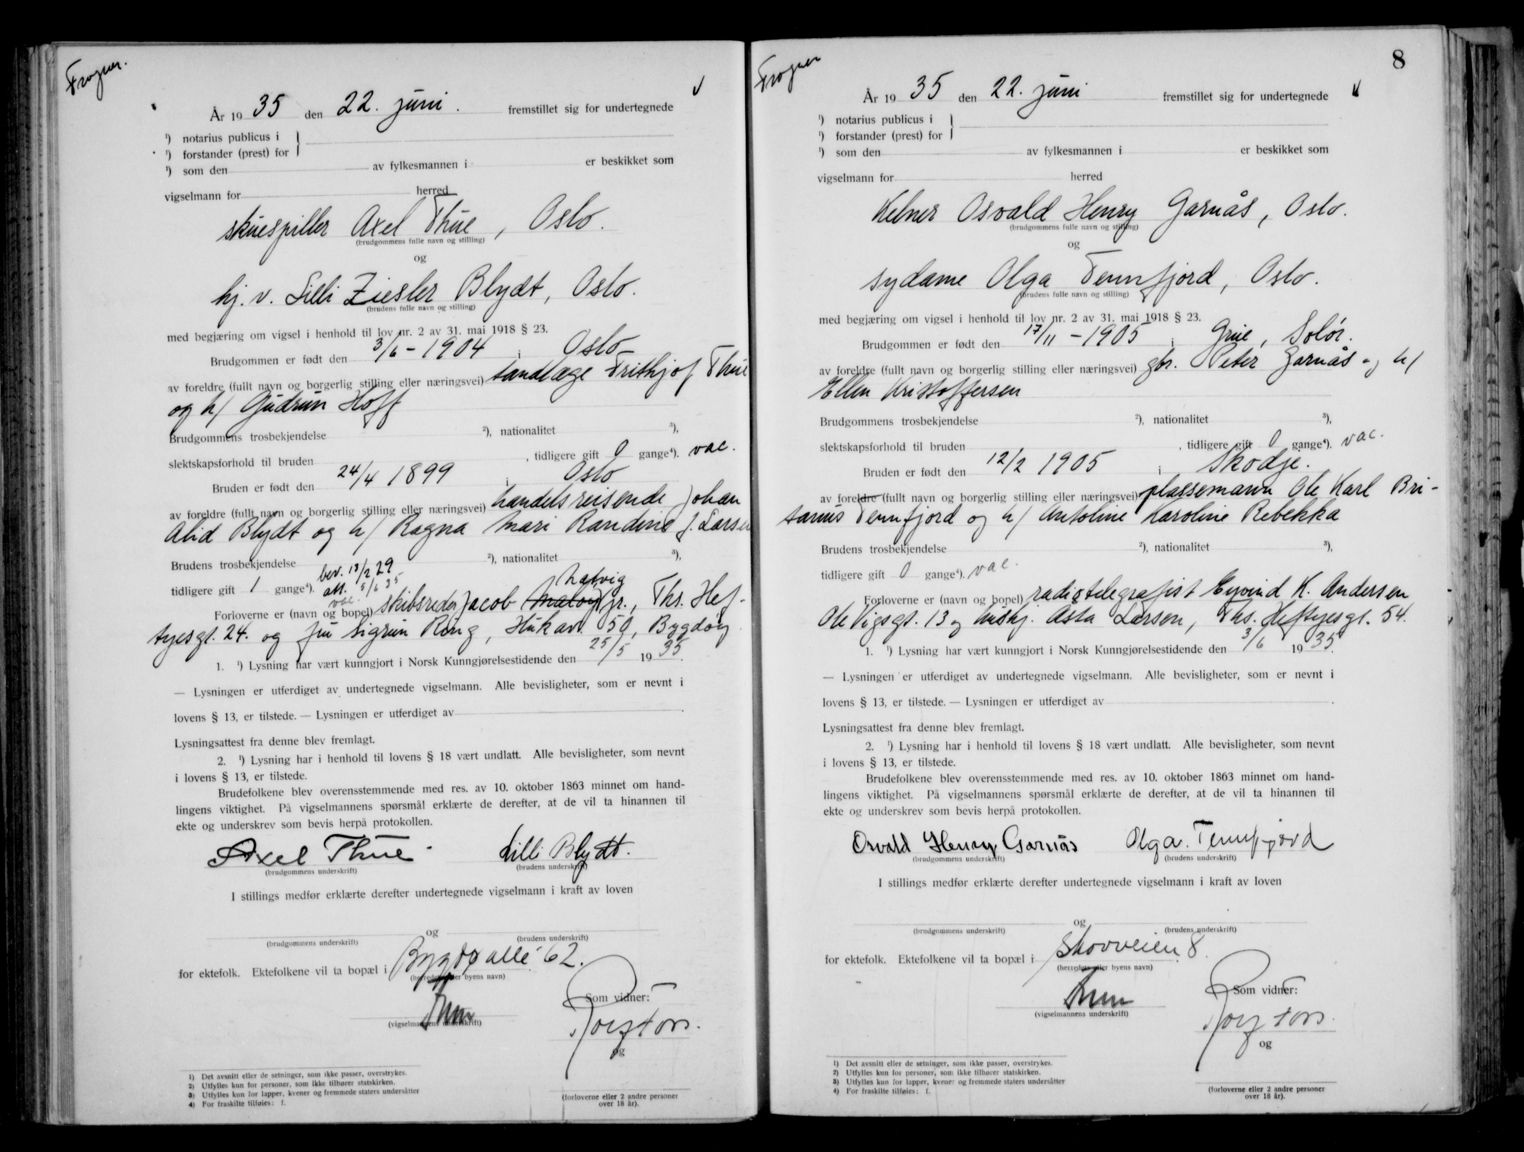 Frogner.
År 1935 den 22. juni. fremstillet sig for undertegnede
¹) notarius publicus i
¹) forstander (prest) for
¹) som den av fylkesmannen i er beskikket som
vigselmann for herred
skuespiller Axel Thue, Oslo.
(brudgommens fulle navn og stilling)
og
hj. v. Lilli Ziesler Blydt, Oslo.
(brudens fulle navn og stilling)
med begjæring om vigsel i henhold til lov nr. 2 av 31. mai 1918 § 23.
Brudgommen er født den 3/6 - 1904 i Oslo
av foreldre (fullt navn og borgerlig stilling eller næringsvei) tandlæge Frithjof Thue
og h/ Gudrun Hoff
Brudgommens trosbekjendelse ²), nationalitet ³),
slektskapsforhold til bruden , tidligere gift 0 gange⁴). vac.
Bruden er født den 24/4 1899 i Oslo
av foreldre (fullt navn og borgerlig stilling eller næringsvei) handelsreisende Johan
Alid Blydt og h/ Ragna Mari Randine J. Larsen
Brudens trosbekjendelse ²), nationalitet ³),
tidligere gift 1 gange⁴). bev. 18/2 29
att. 5/6 35
vac.
Forloverne er (navn og bopel) skibsreder Jacob Hatvig jr., Ths. Hef-
tyesgt. 24. og fru Sigrun Rong, Huk av. 50, Bygdøy
1. ¹) Lysning har vært kunngjort i Norsk Kunngjørelsestidende den 25/5 1935.
— Lysningen er utferdiget av undertegnede vigselmann. Alle bevisligheter, som er nevnt i
lovens § 13, er tilstede. — Lysningen er utferdiget av
Lysningsattest fra denne blev fremlagt.
2. ¹) Lysning har i henhold til lovens § 18 vært undlatt. Alle bevisligheter, som nevnt
i lovens § 13, er tilstede.
Brudefolkene blev overensstemmende med res. av 10. oktober 1863 minnet om hand-
lingens viktighet. På vigselmannens spørsmål erklærte de derefter, at de vil ta hinannen til
ekte og underskrev som bevis herpå protokollen.
Axel Thue. Lilli Blydt.
(brudgommens underskrift) (brudens underskrift)
I stillings medfør erklærte derefter undertegnede vigselmann i kraft av loven
og
(brudgommens underskrift) (brudens underskrift)
for ektefolk. Ektefolkene vil ta bopæl i Bygdø allé 62.
(herredets eller byens navn)
(vigselmannens underskrift)
Som vidner:
og
(forloverne eller 2 andre personer
over 18 år).
1) Det avsnitt eller de setninger, som ikke passer, overstrykes.
2) Utfylles kun for personer, som ikke tilhører statskirken.
3) Utfylles kun for lapper, kvener og fremmede staters undersåtter
4) For fraskilte tilføies: f.
Frogner
8
År 1935 den 22. juni fremstillet sig for undertegnede
¹) notarius publicus i
¹) forstander (prest) for
¹) som den av fylkesmannen i er beskikket som
vigselmann for herred
Kelner Osvald Henry Garnås, Oslo.
(brudgommens fulle navn og stilling)
og
sydame Olga Tennfjord, Oslo.
(brudens fulle navn og stilling)
med begjæring om vigsel i henhold til lov nr. 2 av 31. mai 1918 § 23.
Brudgommen er født den 17/11 - 1905 i Grue, Solør.
av foreldre (fullt navn og borgerlig stilling eller næringsvei) gbr. Peter Garnås og h/
Ellen Kristoffersen
Brudgommens trosbekjendelse ²), nationalitet ³),
slektskapsforhold til bruden , tidligere gift 0 gange⁴). vac.
Bruden er født den 12/2 1905 i Skodje.
av foreldre (fullt navn og borgerlig stilling eller næringsvei) plassemann Ole Karl Bri-
tanus Tennfjord og h/ Antoline Karoline Rebekka
Brudens trosbekjendelse ²), nationalitet ³),
tidligere gift 0 gange⁴). vac.
Forloverne er (navn og bopel) radiotelegrafist Eyvind K. Andersen
Ole Vigsgt. 13 og hushj. Asta Larsen, Ths. Heftyesgt. 54.
1. ¹) Lysning har vært kunngjort i Norsk Kunngjørelsestidende den 3/6 1935.
— Lysningen er utferdiget av undertegnede vigselmann. Alle bevisligheter, som er nevnt i
lovens § 13, er tilstede. — Lysningen er utferdiget av
Lysningsattest fra denne blev fremlagt.
2. ¹) Lysning har i henhold til lovens § 18 vært undlatt. Alle bevisligheter, som nevnt
i lovens § 13, er tilstede.
Brudefolkene blev overensstemmende med res. av 10. oktober 1863 minnet om hand-
lingens viktighet. På vigselmannens spørsmål erklærte de derefter, at de vil ta hinannen til
ekte og underskrev som bevis herpå protokollen.
Osvald Henry Garnås Olga. Tennfjord
(brudgommens underskrift) (brudens underskrift)
I stillings medfør erklærte derefter undertegnede vigselmann i kraft av loven
og
(brudgommens underskrift) (brudens underskrift)
for ektefolk. Ektefolkene vil ta bopæl i Skovveien 8.
(herredets eller byens navn)
(vigselmannens underskrift)
Som vidner:
og
(forloverne eller 2 andre personer
over 18 år).
1) Det avsnitt eller de setninger, som ikke passer, overstrykes.
2) Utfylles kun for personer, som ikke tilhører statskirken.
3) Utfylles kun for lapper, kvener og fremmede staters undersåtter
4) For fraskilte tilføies: f.